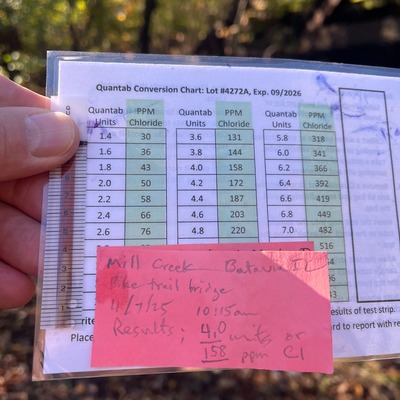 Quantab Conversion Chart: Lot #4272A, Exp. 09/2026
Quantab Units PPM Chloride Quantab Units PPM Chloride Quantab Units PPM Chloride
1.4 30 3.6 131 5.8 318
1.6 36 3.8 144 6.0 341
1.8 43 4.0 158 6.2 366
2.0 50 4.2 172 6.4 392
2.2 58 4.4 187 6.6 419
2.4 66 4.6 203 6.8 449
2.6 76 4.8 220 7.0 482
516
Mill Creek Batavia IL
Bike trail bridge
4/7/25 10:15am
Results: 4.0 units or
158 ppm Cl
results of test strip.
to report with
Place